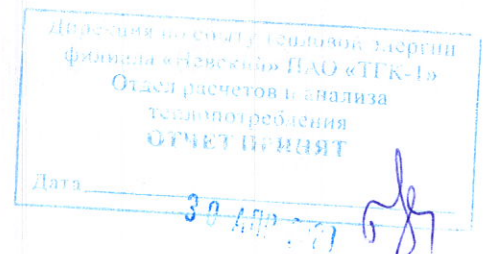 Дирекция по сбыту тепловой энергии
филиала «Невский» ПАО «ТГК-1»
Отдел расчетов и анализа
теплопотребления
ОТЧЕТ ПРИНЯТ
Дата
30 АПР